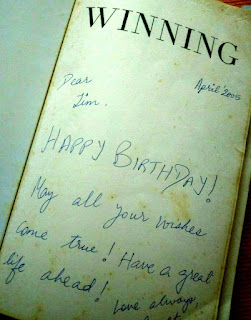 WINNING
April 2006
Dear
Jim.
HAPPY BIRTHDAY!
May all your wishes
come true! Have a great
life ahead!
Love always,